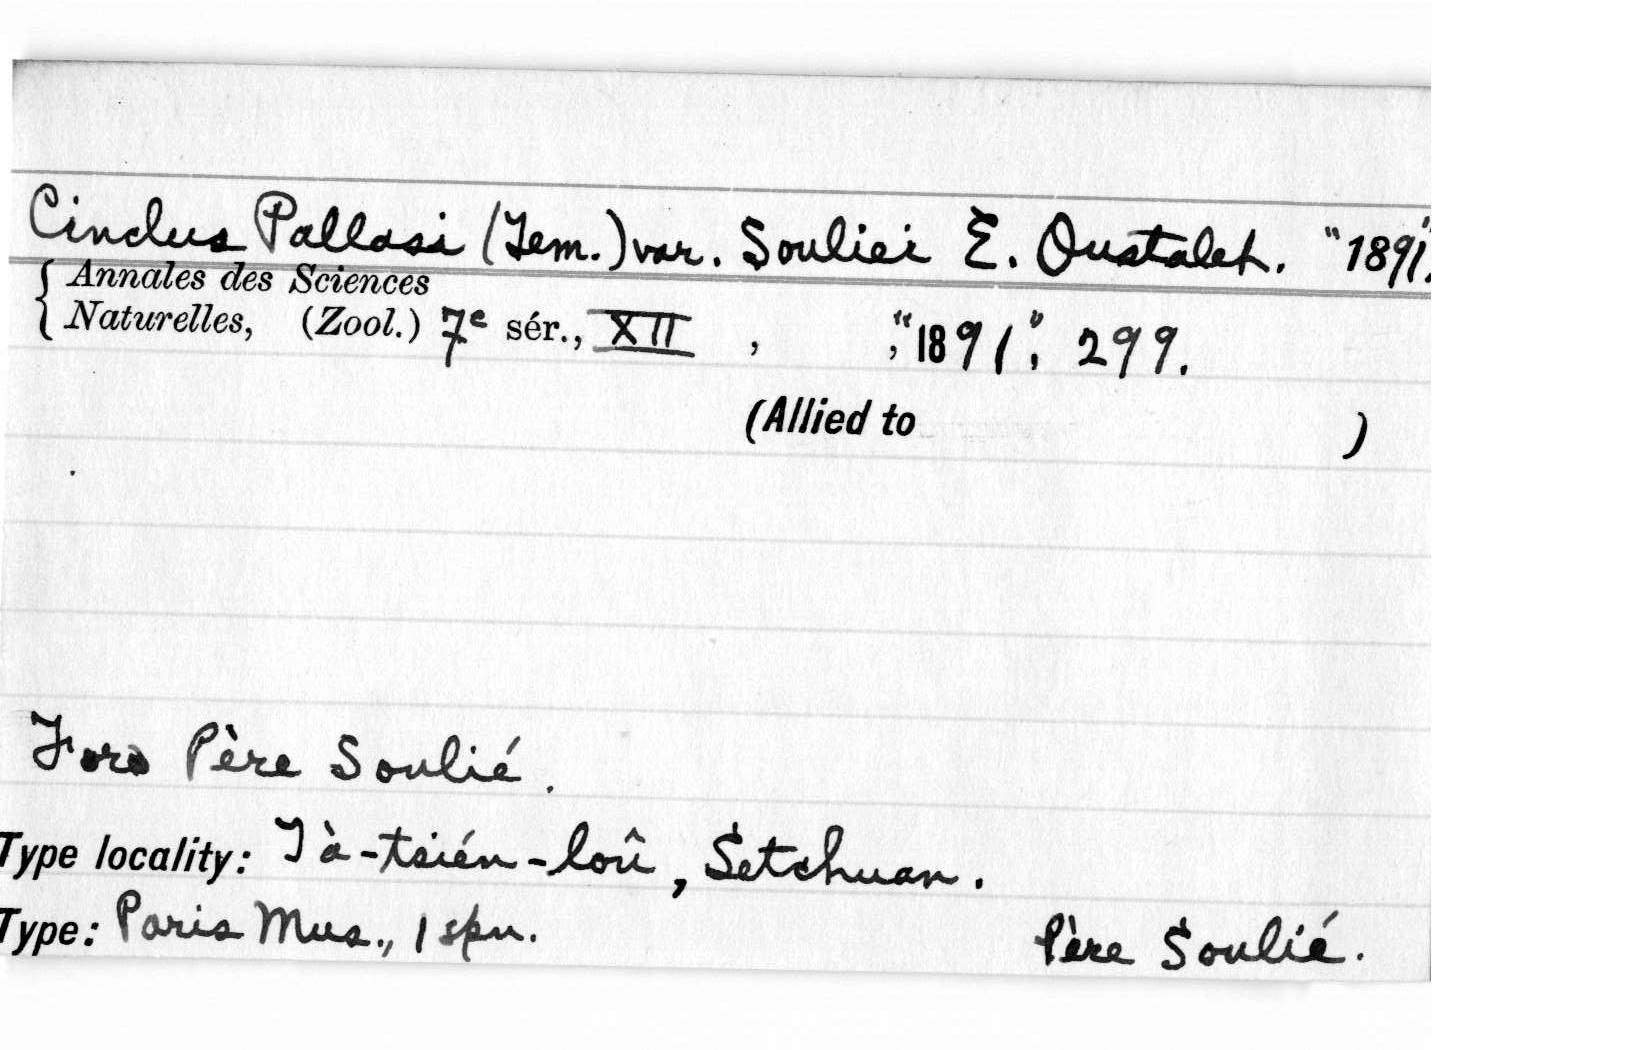 Cinclus Pallasi (Tem.) var. Souliei E. Oustalet. "1891".
Annales des Sciences
Naturelles, (Zool.) 7e sér., XII , ,"1891", 299.
(Allied to )
For Père Soulié.
Type locality: Tà-tsién-loû, Setchuan.
Type: Paris Mus., 1 spn. Père Soulié.